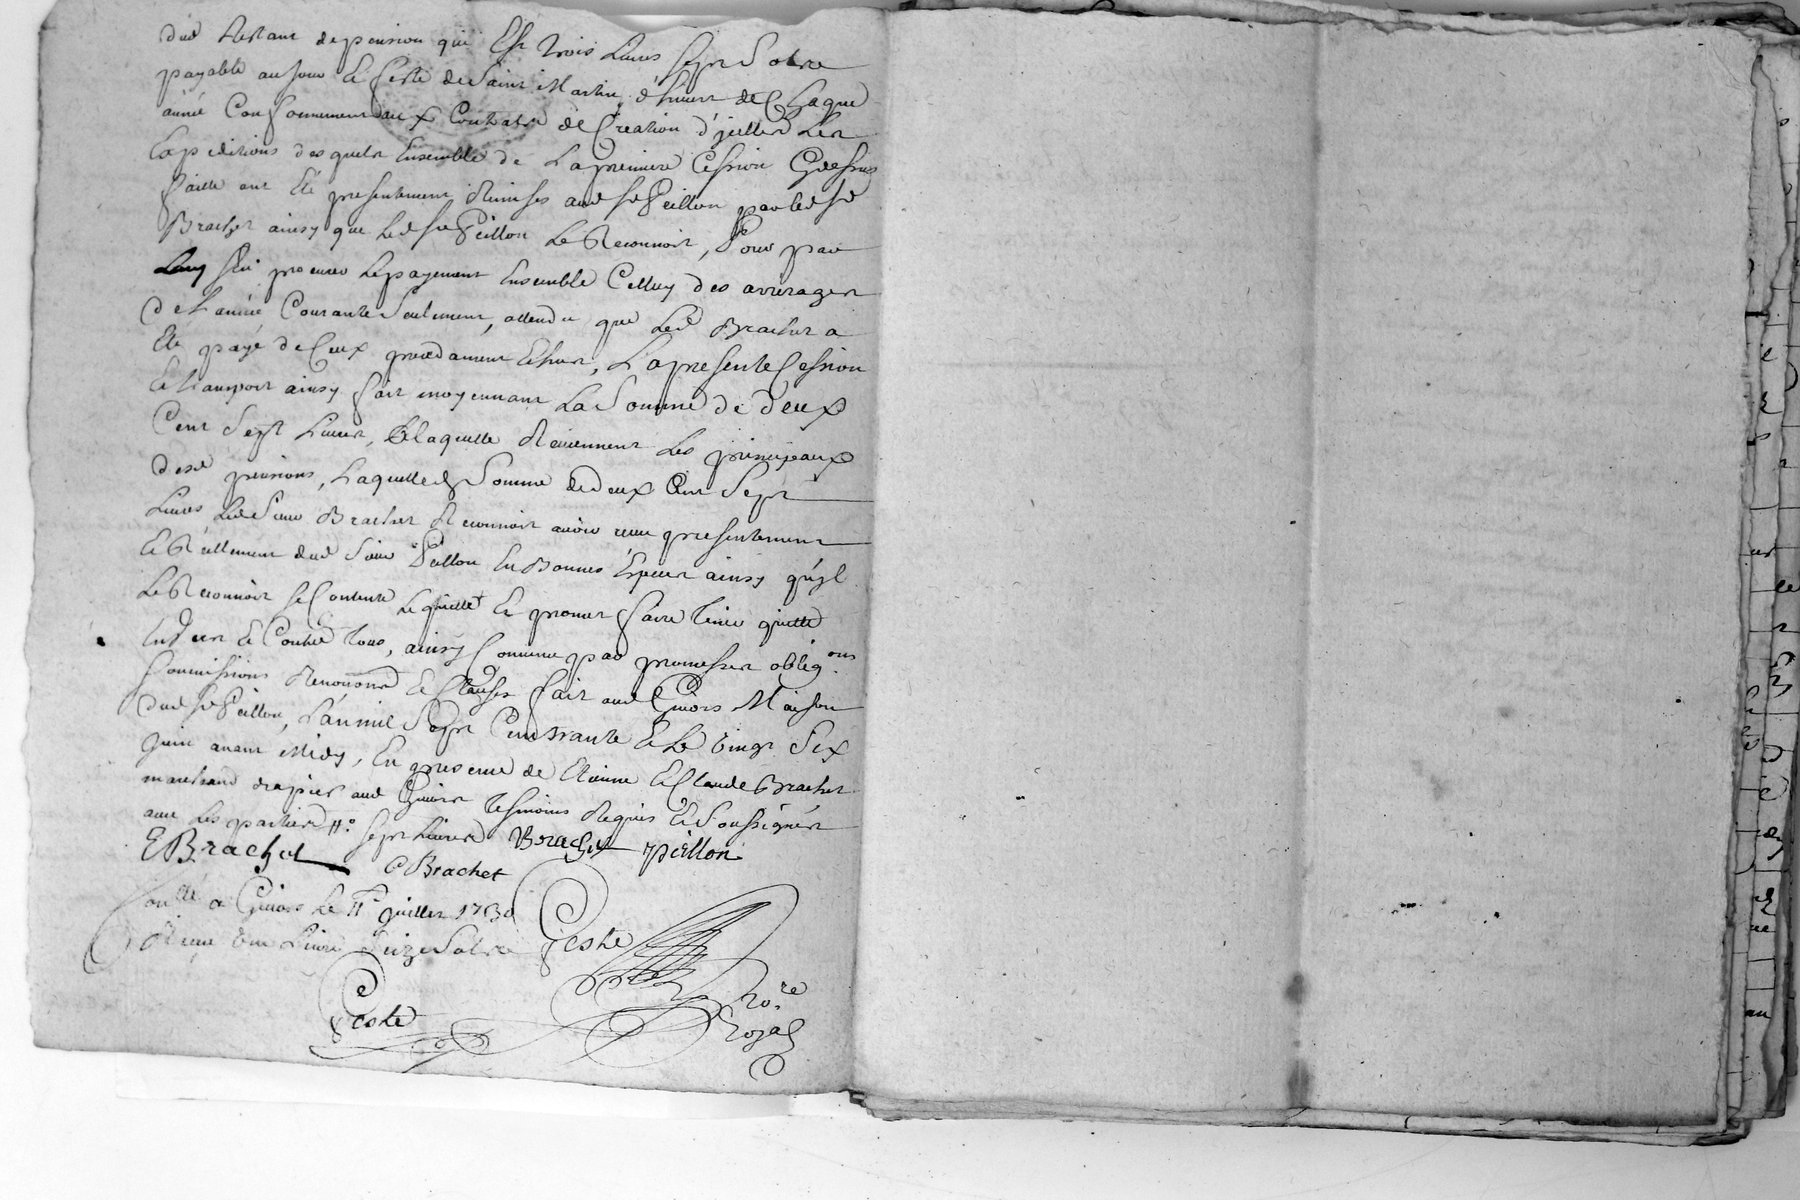 dud Restant de pension qui Est trois Livres sept Sols
payable au Jour & feste de Saint Martin d'hiuert de Chaque
année Conformement aux Contrats de Creation d'jcelles Les
Expeditions desquels Ensemble de La premiere Cession Cydessus
faitte ont Eté presentement Remises aud Sr Peillon par led Sr
Brachet ainsy que Led Sr Peillon Le Reconnoit, Pour par
Luy s'en procurer Lepayement Ensemble Celluy des arrerages
de L'année Courante Seulement, attendu que Led Brachet a
Eté payé de Ceux precedament Echus, La presente Cession
& transport ainsy fait moyennant La Somme de deux
Cent Sept Livres, A laquelle Reviennent Les principaux
desd pensions, Laquelle Somme de deux Cent Sept
Livres Led Sieur Brachet Reconnoit avoir reçu presentement
& Reellement dud Sieur Peillon En Bonnes Especes ainsy qu'jl
Le Reconnoit se Contente Le quitte & promet faire tenir quitte
Envers & Contre Tous, ainsy Comme par promesses oblig.ons
soumissions Renonons & Clauses fait aud Givors Maison
dud Sr Peillon, L'an mil Sept Cent trante & Le vingt Six
Juin avant Midy, En presence de Etienne & Claude Brachet
marchand drapier aud Givors Tesmoins Requis & Soussignés
avec Les parties #. sept Livres Brachet peillon
E Brachet C Brachet
Con.llé a Givors Le 11e Juillet 1730
Reçu Une Livre Seize Sols Geste
Geste No.re
Royal